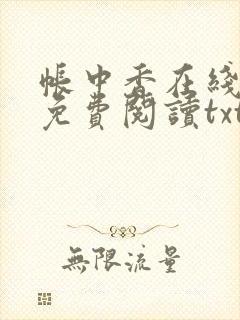 帳中香在綫
免費閱讀txt
無限流量